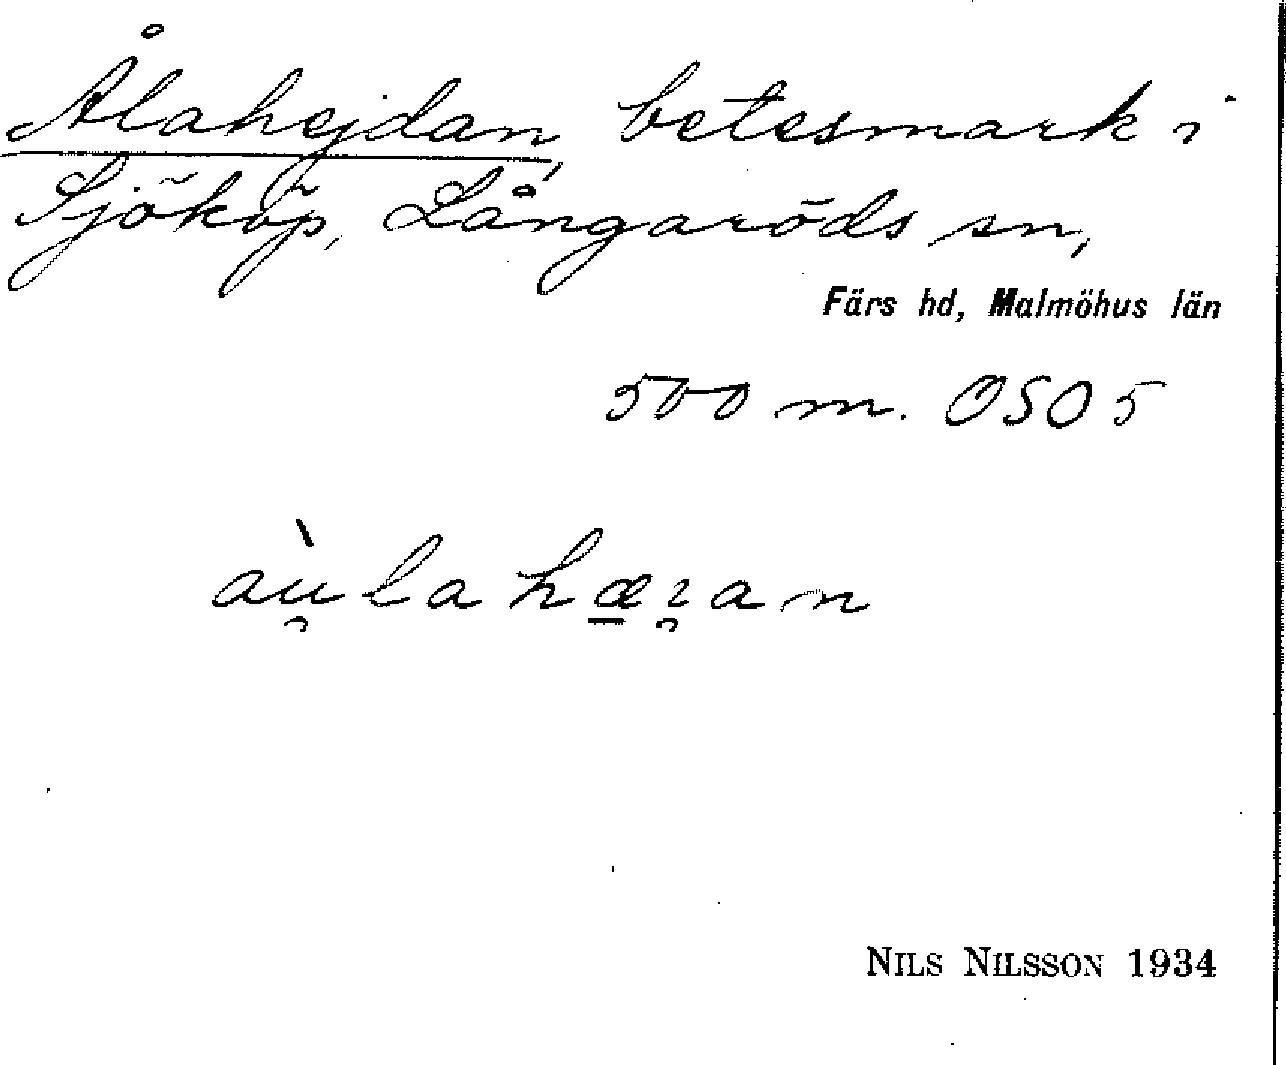 Ålahejdan, betesmark i
Sjököp, Långaröds sn,
Färs hd, Malmöhus län
500 m. OSO 5
aù̯lahæ̱ɪ̯an
NILS NILSSON 1934